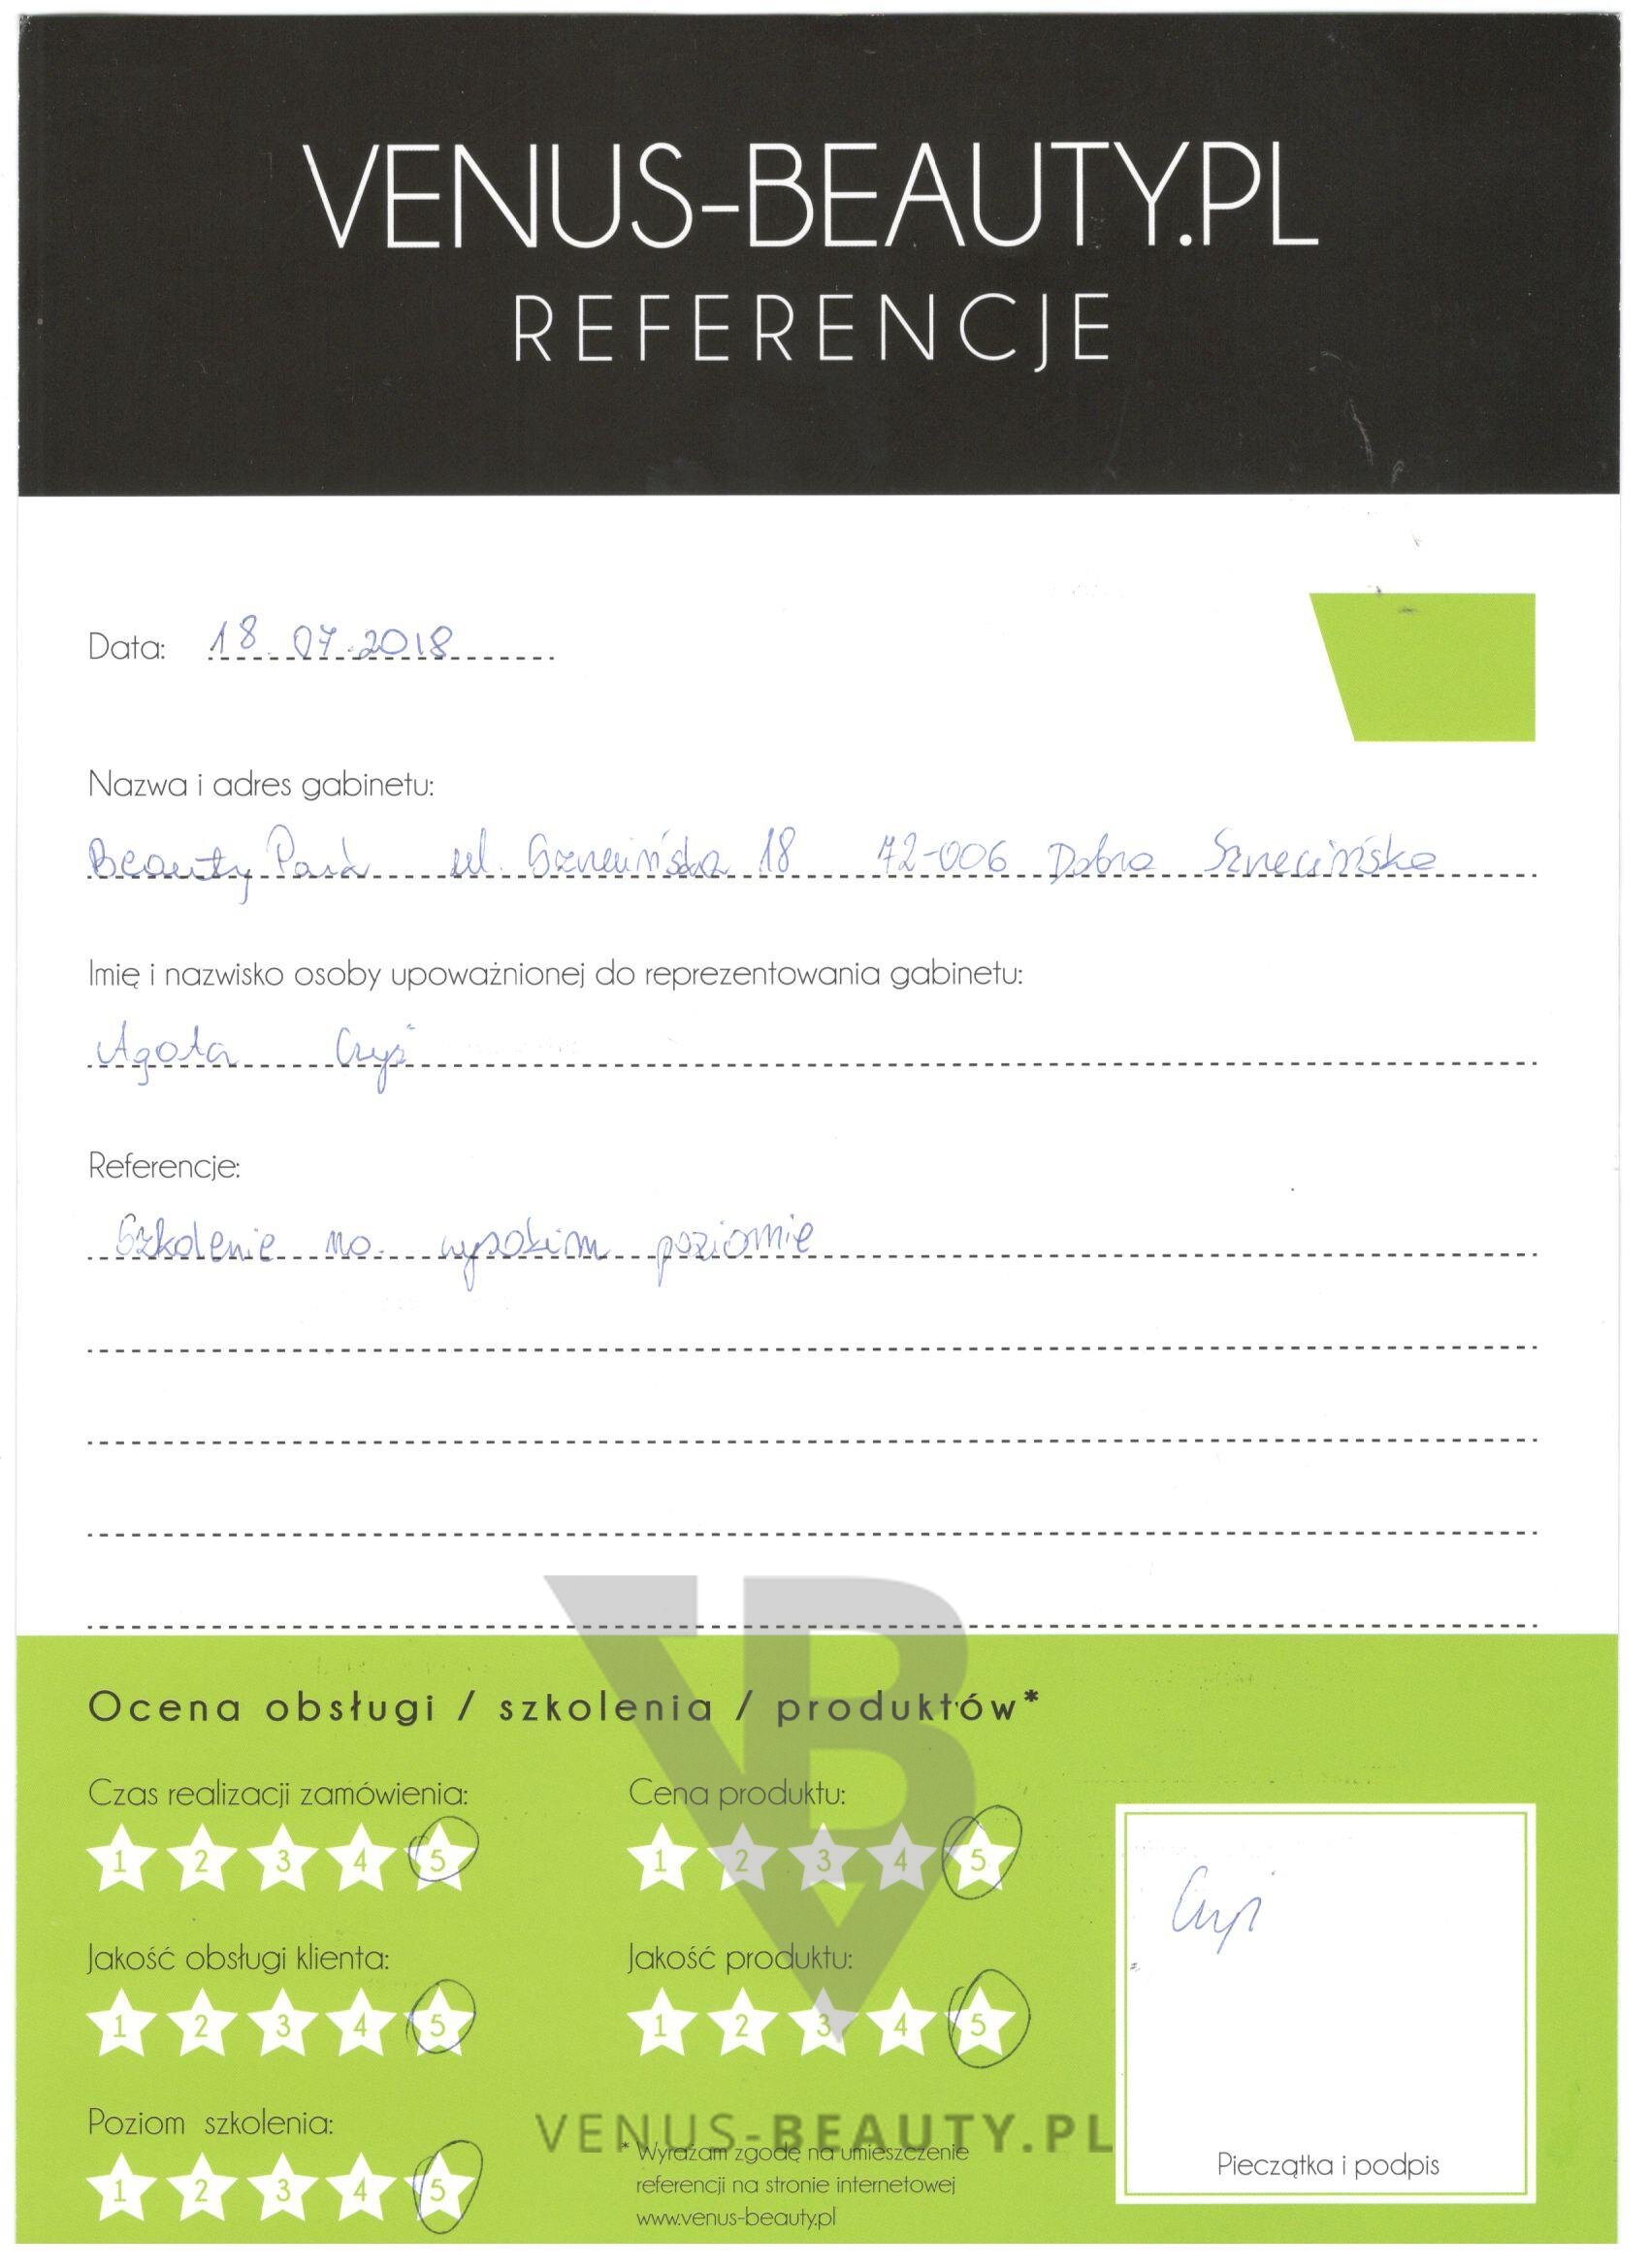 VENUS-BEAUTY.PL
REFERENCJE
Data: 18.07.2018
Nazwa i adres gabinetu:
Beauty Park ul. Szczecińska 18 72-006 Dobra Szczecińska
Imię i nazwisko osoby upoważnionej do reprezentowania gabinetu:
Agata
Referencje:
Szkolenie na wysokim poziomie
Ocena obsługi / szkolenia / produktów*
Czas realizacji zamówienia: Cena produktu:
1 2 3 4 5 1 2 3 4 5
Jakość obsługi klienta: Jakość produktu:
1 2 3 4 5 1 2 3 4 5
Poziom szkolenia:
1 2 3 4 5
VB
VENUS-BEAUTY.PL
* Wyrażam zgodę na umieszczenie
referencji na stronie internetowej
www.venus-beauty.pl
Pieczątka i podpis